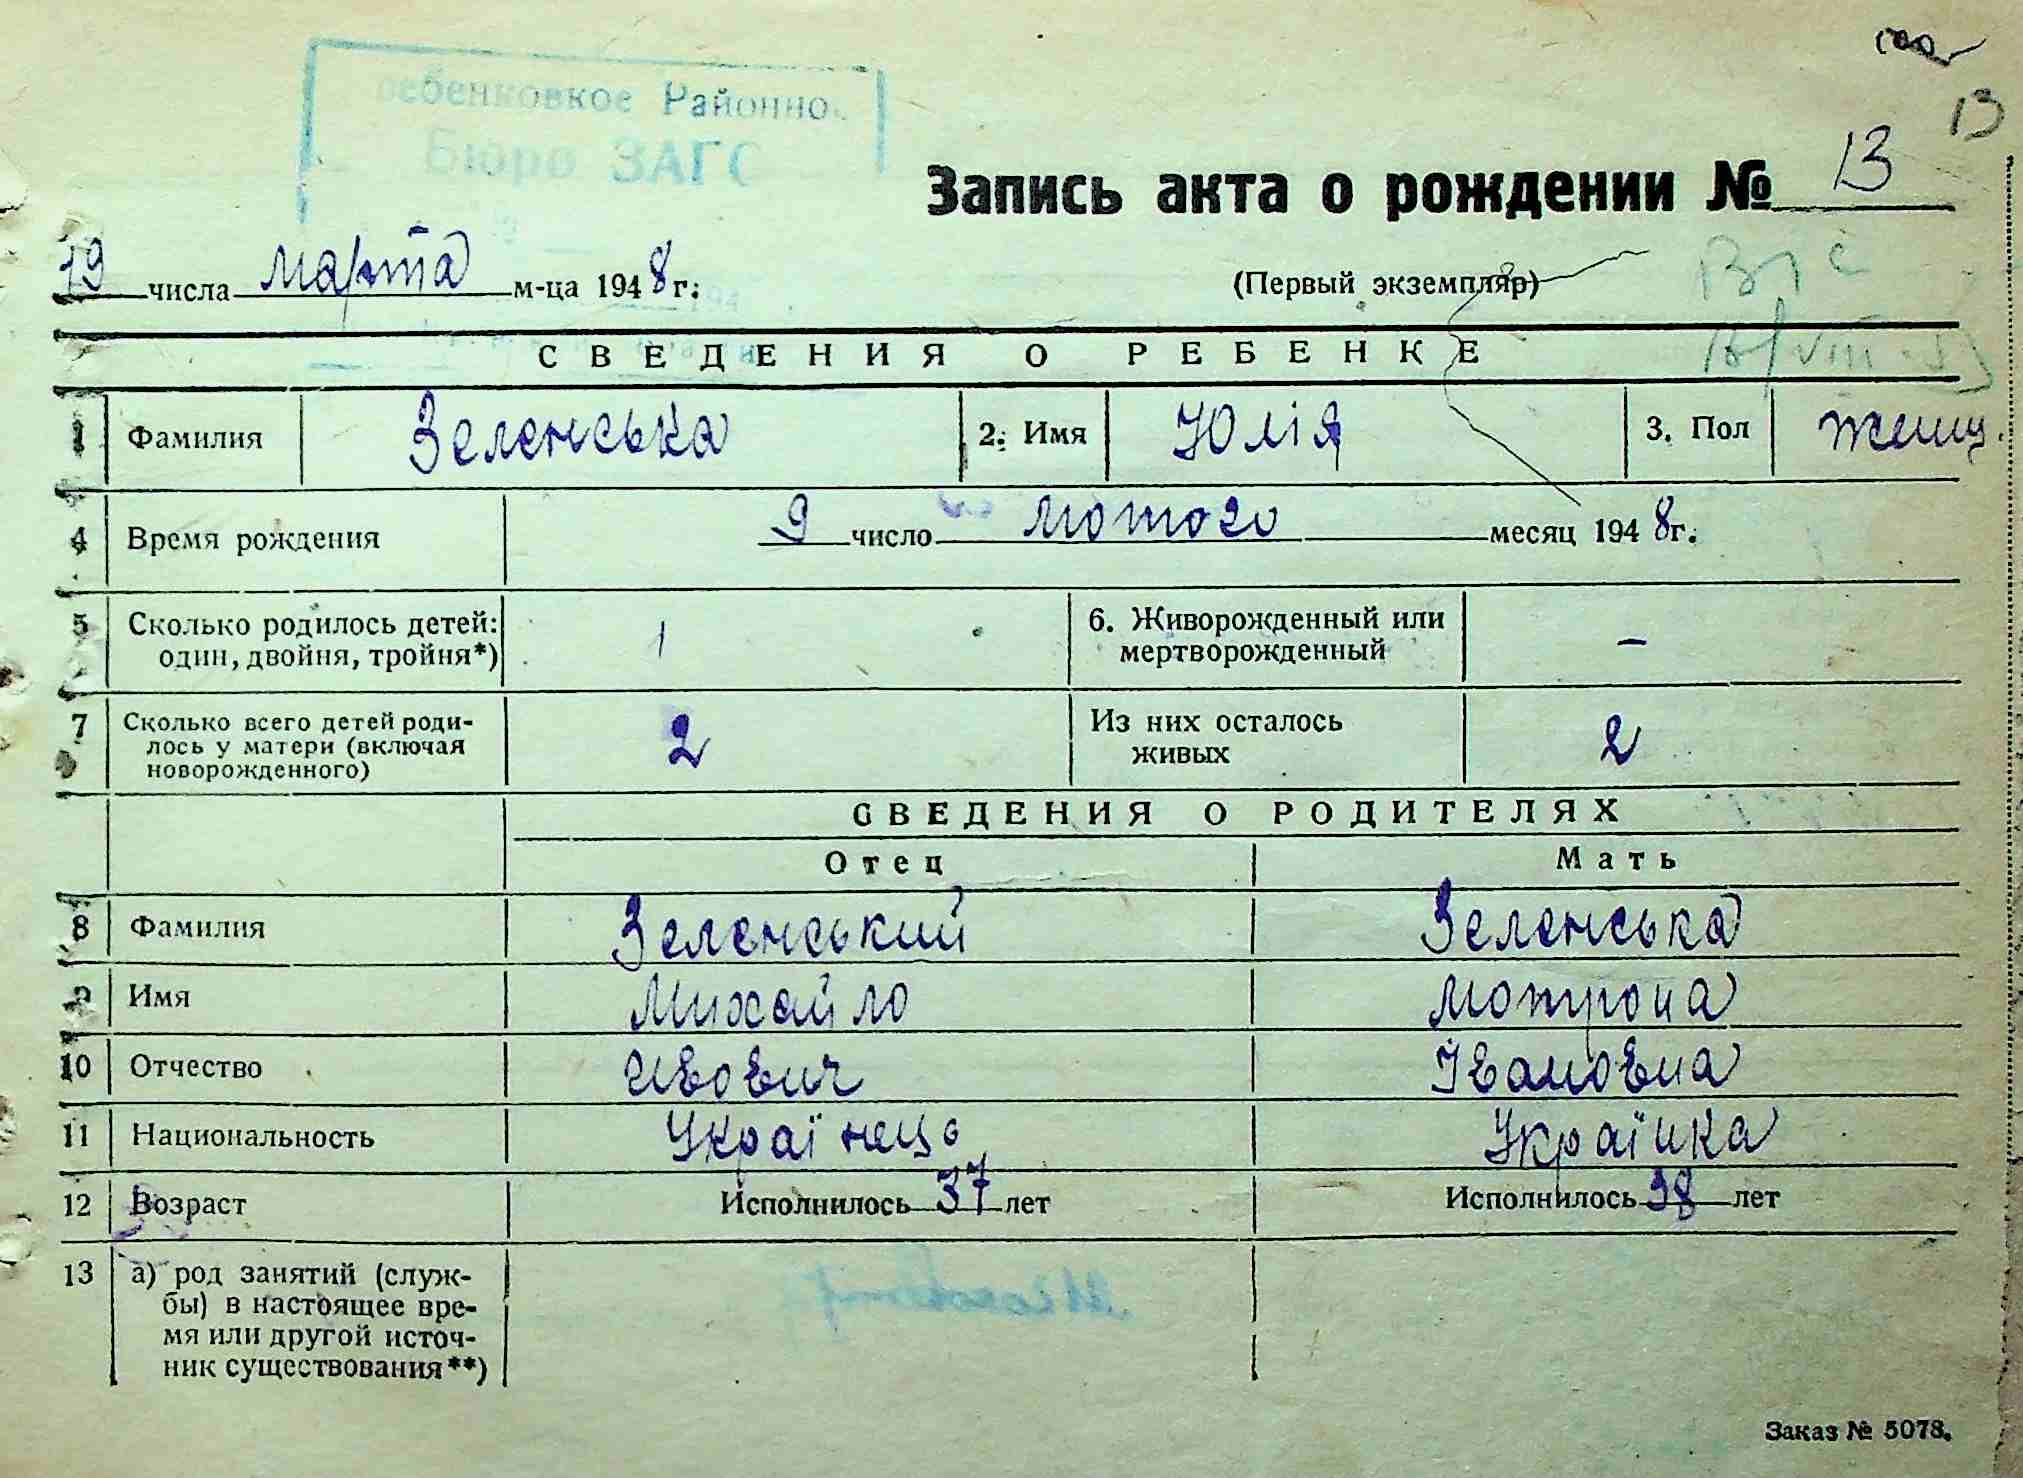 Районно
Бюро ЗАГС
13
Запись акта о рождении № 13
19 числа марта м-ца 1948 г.
(Первый экземпляр)
СВЕДЕНИЯ О РЕБЕНКЕ
1 Фамилия Зеленська 2. Имя Юлія 3. Пол женщ.
4 Время рождения 9 число лютого месяц 1948 г.
5 Сколько родилось детей: 1 6. Живорожденный или –
один, двойня, тройня*) мертворожденный
7 Сколько всего детей роди- 2 Из них осталось 2
лось у матери (включая живых
новорожденного)
СВЕДЕНИЯ О РОДИТЕЛЯХ
Отец Мать
8 Фамилия Зеленський Зеленська
9 Имя Михайло Мотрона
10 Отчество Івановна
11 Национальность Українець Українка
12 Возраст Исполнилось 37 лет Исполнилось 38 лет
13 а) род занятий (служ-
бы) в настоящее вре-
мя или другой источ-
ник существования**)
Заказ № 5078.